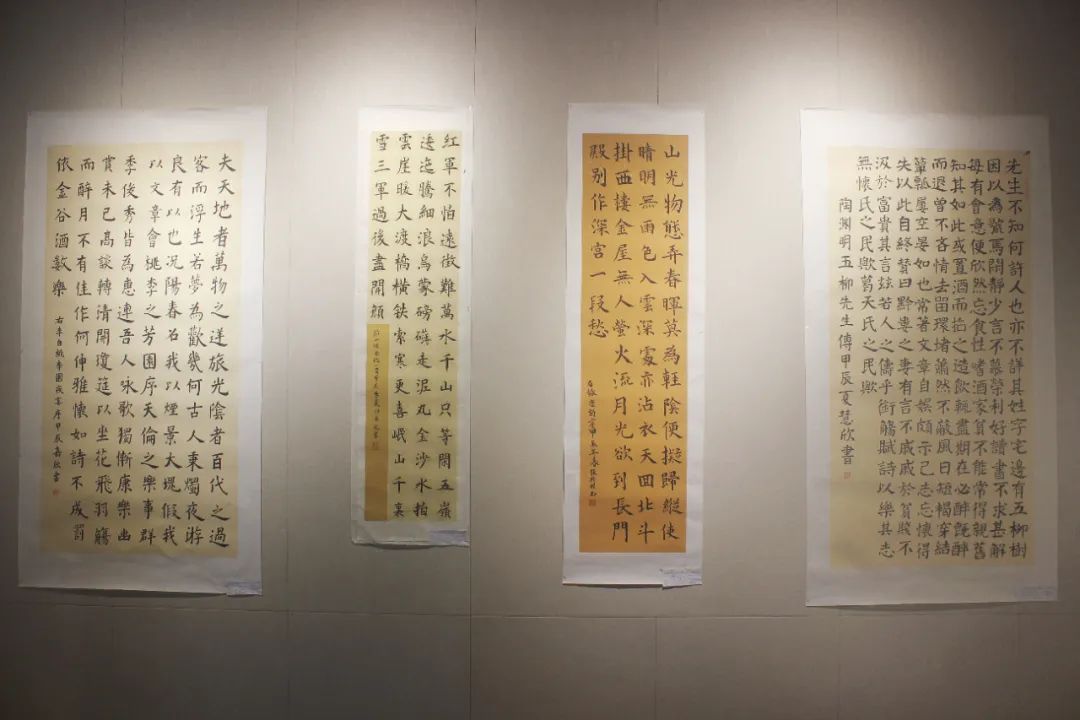 夫天地者萬物之逆旅光陰者百代之過
客而浮生若夢為歡幾何古人秉燭夜遊
良有以也況陽春召我以煙景大塊假我
以文章會桃李之芳園序天倫之樂事群
季俊秀皆為惠連吾人詠歌獨慚康樂幽
賞未已高談轉清開瓊筵以坐花飛羽觴
而醉月不有佳作何伸雅懷如詩不成罰
依金谷酒數樂
嘉欣書
紅軍不怕遠徵難萬水千山只等閑五嶺
逶迤騰細浪烏蒙磅礴走泥丸金沙水拍
雲崖暖大渡橋橫鉄索寒更喜岷山千裏
雪三軍過後盡開顏
山光物態弄春暉莫為輕陰便擬歸縱使
晴明無雨色入雲深處亦沾衣天回北斗
掛西樓金屋無人螢火流月光欲到長門
殿別作深宮一段愁
先生不知何許人也亦不詳其姓字宅邊有五柳樹
因以為號焉閑靜少言不慕榮利好讀書不求甚解
每有會意便欣然忘食性嗜酒家貧不能常得親舊
知其如此或置酒而招之造飲輒盡期在必醉既醉
而退曾不吝情去留環堵蕭然不蔽風日短褐穿結
簞瓢屢空晏如也常著文章自娛頗示己志忘懷得
失以此自終贊曰黔婁之妻有言不戚戚於貧賤不
汲於富貴其言玆若人之儔乎銜觴賦詩以樂其志
無懷氏之民歟葛天氏之民歟
陶淵明五柳先生傳甲辰夏慧欣書